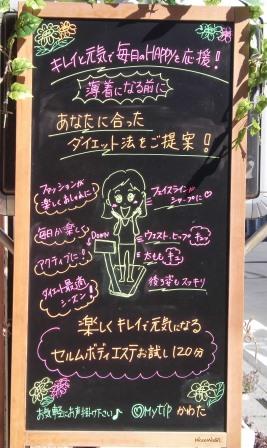 キレイと元気で毎日のHAPPYを応援!
薄着になる前に
あなたに合った
ダイエット法をご提案!
ファッションが
楽しくおしゃれに!
毎日が楽しく
アクティブに!
ダイエット最適
シーズン!
DOWN
フェイスラインが
シャープに♡
ウエスト、ヒップがキュッ
太ももキュ
後ろ姿もスッキリ
楽しくキレイで元気になる
セルムボディエステお試し120分
お気軽にお声掛け下さい♪
Mytip かわた